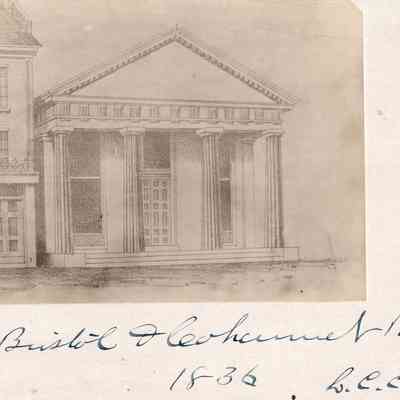 Bristol & Cohannet
1836 L.C.C